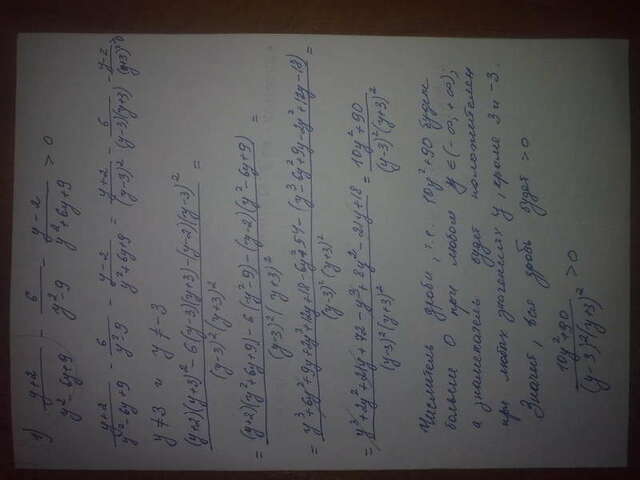 1) \frac{y+2}{y²-6y+9} - \frac{6}{y²-9} - \frac{y-2}{y²+6y+9} > 0
\frac{y+2}{y²-6y+9} - \frac{6}{y²-9} - \frac{y-2}{y²+6y+9} = \frac{y+2}{(y-3)²} - \frac{6}{(y-3)(y+3)} - \frac{y-2}{(y+3)²}
y≠3 и y≠-3
\frac{(y+2)(y+3)²-6(y-3)(y+3)-(y-2)(y-3)²}{(y-3)²(y+3)²} =
= \frac{(y+2)(y²+6y+9)-6(y²-9)-(y-2)(y²-6y+9)}{(y-3)²(y+3)²} =
= \frac{y³+6y²+9y+2y²+12y+18-6y²+54-(y³-6y²+9y-2y²+12y-18)}{(y-3)²(y+3)²} =
= \frac{y³+2y²+21y+72-y³+8y²-21y+18}{(y-3)²(y+3)²} = \frac{10y²+90}{(y-3)²(y+3)²}
Числитель дроби, т.е. 10y²+90 будет
больше 0 при любом y∈(-∞;+∞);
а знаменатель будет положителен
при любых значениях y, кроме 3 и -3.
Значит, вся дробь будет >0
\frac{10y²+90}{(y-3)²(y+3)²} >0